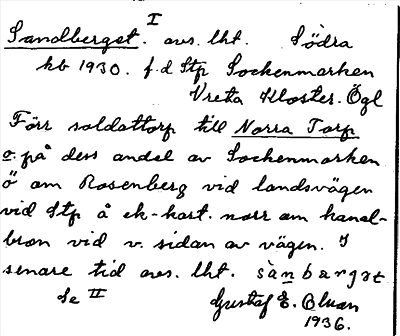 I
Sandberget. avs. lht. Södra
kb 1930. f.d Stp Sockenmarken
Vreta Kloster. Ögl
Förr soldattorp till Norra Torp
o. på dess andel av Sockenmarken
ö om Rosenberg vid landsvägen
vid Stp å ek-kart. norr om kanal-
bron vid v. sidan av vägen. I
senare tid avs. lht. sànbærgæt
Se II Gustaf E. Oluan
1936.